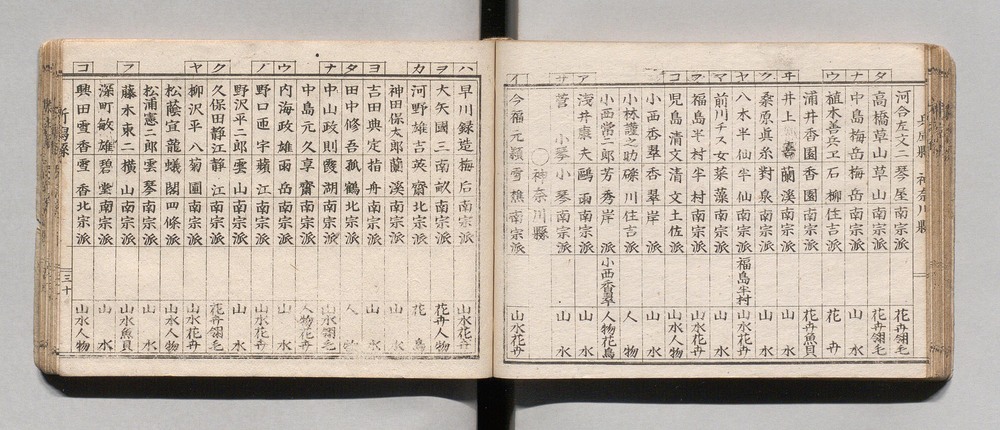 兵庫縣 神奈川縣
タ 河合左文二 琴屋 南宗派 花卉翎毛
高橋草山 草山 南宗派 花卉翎毛
ナ 中島梅岳 梅岳 南宗派 山水
ウ 植木善兵ヱ 石柳 住吉派 花卉
浦井香園 香園 南宗派 花卉魚貝
ヰ 井上 蘭溪 南宗派 山水
ク 桑原眞糸 對泉 南宗派 山水
ヤ 八木半仙 半仙 南宗派 福島半村 山水花卉
マ 前川チス女 菜藻 南宗派 山水
フ 福島半村 半村 南宗派 山水花卉
コ 児島清文 清文 土佐派 山水人物
小西香翠 香翠 岸派 山水
小林謹之助 礫川 住吉派 人物
小西常二郎 芳秀 岸派 小西香翠 人物花鳥
ア 淺井康夫 鷗雨 南宗派 山水
サ 菅小琴 小琴 南宗派 山水
〇神奈川縣
イ 今福元穎 雪樵 南宗派 山水花卉
ハ 早川録造 梅后 南宗派 山水花卉
ヲ 大矢國三 南畝 南宗派 花卉人物
カ 河野雄吉 英齋 南宗派 花鳥
神田保太郎 蘭溪 南宗派 山水
ヨ 吉田興定 指舟 南宗派 山水
タ 田中修吾 孤鶴 北宗派 人物
ナ 中山政則 霞湖 南宗派 山水翎毛
中島元久 享齋 南宗派 人物花卉
ウ 内海政雄 雨岳 南宗派 山水
ノ 野口亟宇 蘋江 南宗派 山水花卉
野沢平二郎 雲山 南宗派 山水
ク 久保田静江 静江 南宗派 花卉翎毛
ヤ 柳沢平八 菊圃 南宗派 山水花卉
松蔭宣龍 蟻閣 四條派 山水人物
松浦憲二郎 雲琴 南宗派 山水
フ 藤木東二 横山 南宗派 山水魚貝
深町敏雄 碧堂 南宗派 山水
コ 興田雪香 雪香 北宗派 山水人物
新潟縣
三十